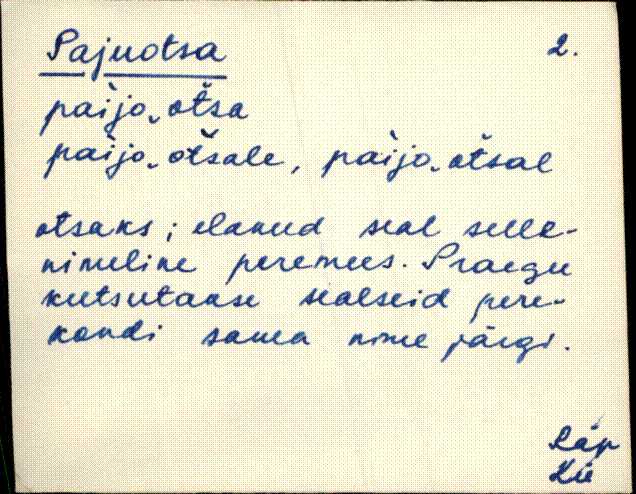 Pajuotsa 2.
pài̯jo͜ otsa
pài̯jo͜ otsale, pài̯jo͜ otsal
otsaks; elanud seal selle-
nimeline peremees. Praegu
kutsutakse sealseid pere-
kondi sama nime järgi.
Räp
Kii